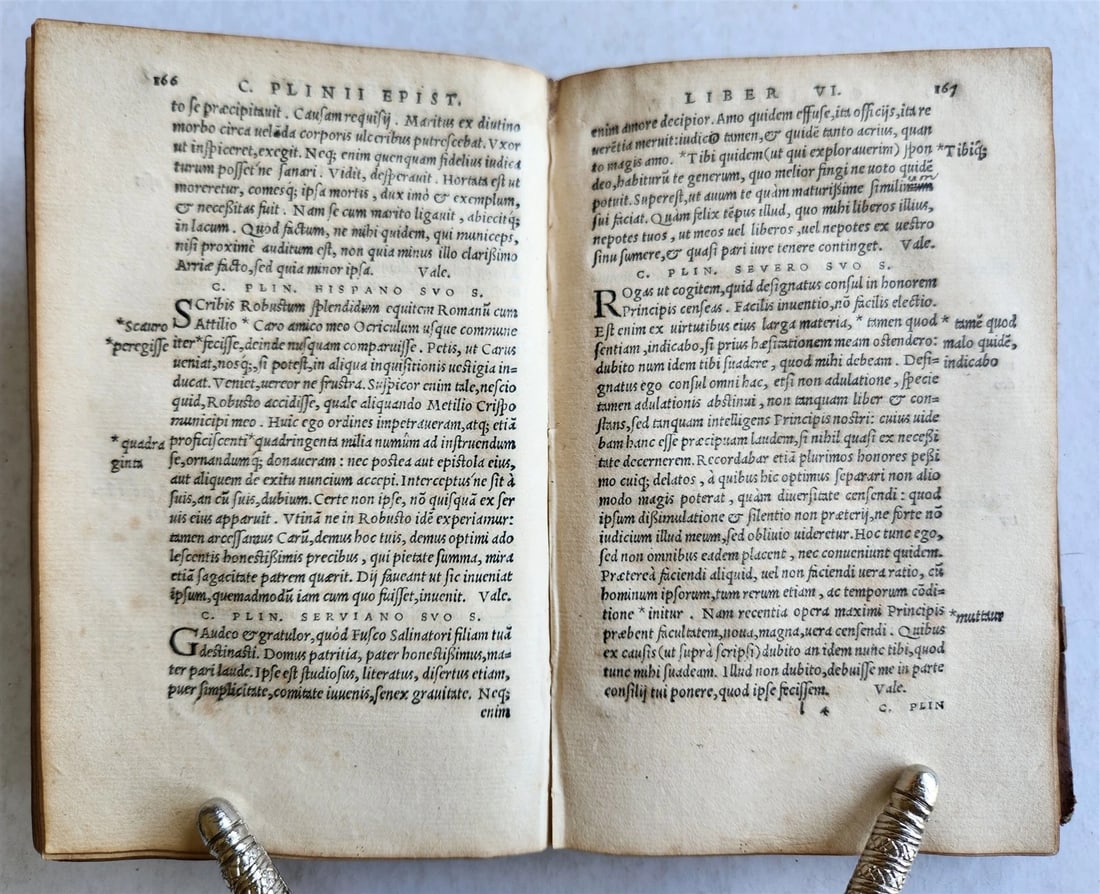 166
C. PLINII EPIST.
to se præcipitauit. Causam requisij. Maritus ex diutino
morbo circa uelãda corporis ulceribus putrescebat. Vxor
ut inspiceret, exegit. Neq; enim quenquam fidelius iudica
turum posset ne sanari. Vidit, desperauit. Hortata est ut
moreretur, comesq; ipsa mortis, dux imò & exemplum,
& necessitas fuit. Nam se cum marito ligauit, abiecitq;
in lacum. Quod factum, ne mihi quidem, qui municeps,
nisi proximè auditum est, non quia minus illo clarissimo
Arriæ facto, sed quia minor ipsa. Vale.
C. PLIN. HISPANO SVO S.
SCribis Robustum splendidum equitem Romanũ cum
*Scauro
Attilio * Caro amico meo Ocriculum usque commune
*peregisse
iter *fecisse, deinde nusquam comparuisse. Petis, ut Carus
ueniat, nosq;, si potest, in aliqua inquisitionis uestigia in=
ducat. Veniet, uereor ne frustra. Suspicor enim tale, nescio
quid, Robusto accidisse, quale aliquando Metilio Crispo
municipi meo. Huic ego ordines impetraueram, atq; etiã
*quadra
proficiscenti *quadringenta milia numûm ad instruendum
ginta
se, ornandumq; donaueram: nec postea aut epistola eius,
aut aliquem de exitu nuncium accepi. Interceptus´ne sit à
suis, an cũ suis, dubium. Certe non ipse, nõ quisquã ex ser
uis eius apparuit. Vtinã ne in Robusto idẽ experiamur:
tamen arcessamus Carũ, demus hoc tuis, demus optimi ado
lescentis honestissimis precibus, qui pietate summa, mira
etiã sagacitate patrem quærit. Dij faueant ut sic inueniat
ipsum, quemadmodũ iam cum quo fuisset, inuenit. Vale.
C. PLIN. SERVIANO SVO S.
GAudeo & gratulor, quòd Fusco Salinatori filiam tuã
destinasti. Domus patritia, pater honestissimus, ma=
ter pari laude. Ipse est studiosus, literatus, disertus etiam,
puer simplicitate, comitate iuuenis, senex grauitate. Neq;
enim
LIBER VI.
167
enim amore decipior. Amo quidem effuse, ita officijs, ita re
uerẽtia meruit: iudico tamen, & quidẽ tanto acrius, quan
to magis amo. *Tibi quidem (ut qui explorauerim) spon
*Tibiq;
deo, habiturũ te generum, quo melior fingi ne uoto quidẽ
potuit. Superest, ut auum te quàm maturissime similinum
sui faciat. Quàm felix tẽpus illud, quo mihi liberos illius,
nepotes tuos, ut meos uel liberos, uel nepotes ex uestro
sinu sumere, & quasi pari iure tenere continget. Vale.
C. PLIN. SEVERO SVO S.
ROgas ut cogitem, quid designatus consul in honorem
Principis censeas. Facilis inuentio, nõ facilis electio.
Est enim ex uirtutibus eius larga materia, * tamen quod
* tamẽ quod
sentiam, indicabo, si prius hæsitationem meam ostendero:
malo quidẽ,
dubito num idem tibi suadere, quod mihi debeam. Desi=
indicabo
gnatus ego consul omni hac, etsi non adulatione, specie
tamen adulationis abstinui, non tanquam liber & con=
stans, sed tanquam intelligens Principis nostri: cuius uide
bam hanc esse præcipuam laudem, si nihil quasi ex necessi
tate decernerem. Recordabar etiã plurimos honores pessi
mo cuiq; delatos, à quibus hic optimus separari non alio
modo magis poterat, quàm diuersitate censendi: quod
ipsum dissimulatione & silentio non præterij, ne forte nõ
iudicium illud meum, sed obliuio uideretur. Hoc tunc ego,
sed non omnibus eadem placent, nec conueniunt quidem.
Prætereà faciendi aliquid, uel non faciendi uera ratio, cũ
hominum ipsorum, tum rerum etiam, ac temporum cõdi=
tione *initur. Nam recentia opera maximi Principis
*mutatur
præbent facultatem, noua, magna, uera censendi. Quibus
ex causis (ut suprà scripsi) dubito an idem nunc tibi, quod
tunc mihi suadeam. Illud non dubito, debuisse me in parte
consilij tui ponere, quod ipse fecissem. Vale.
l 4 C. PLIN